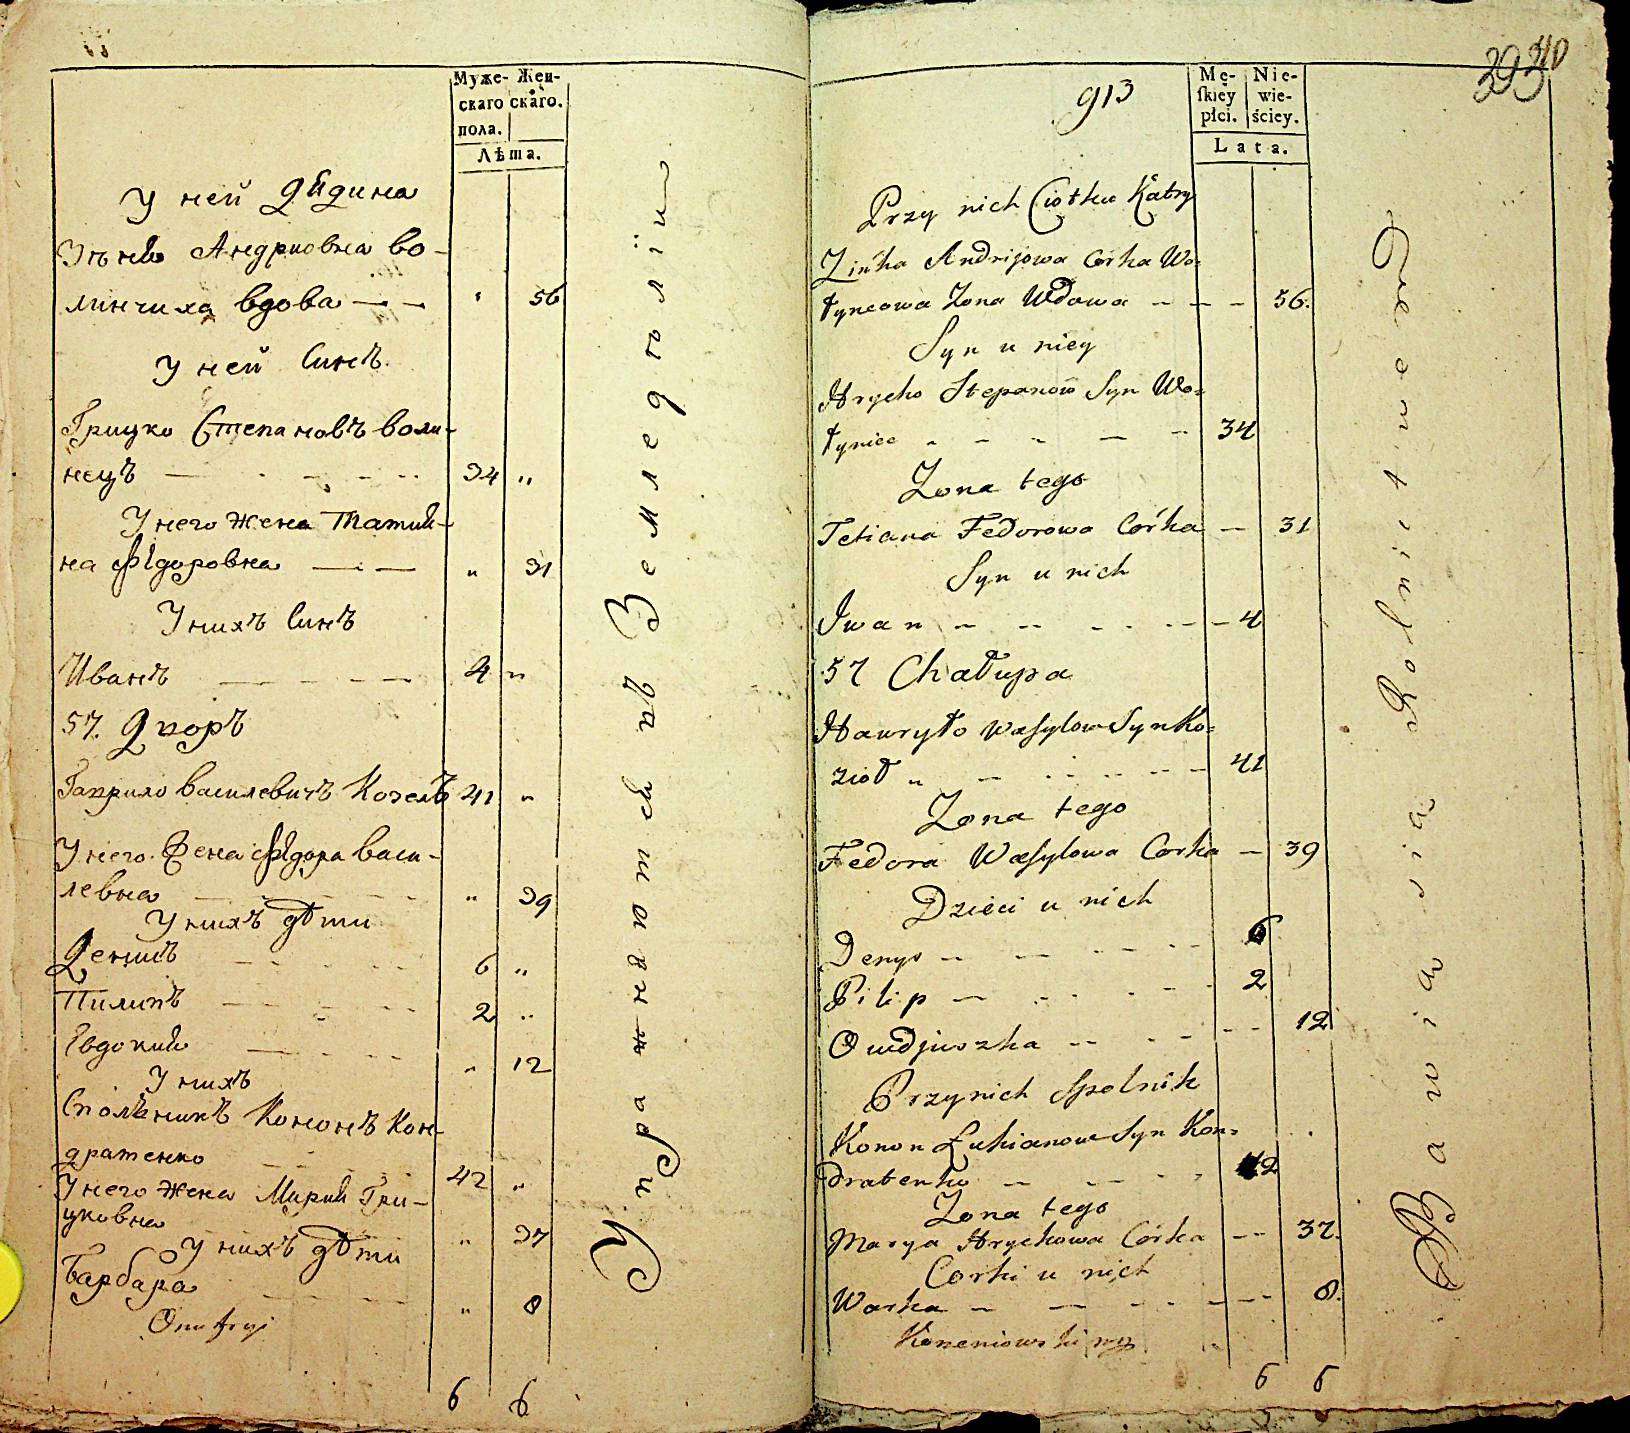 Муже- Жен-
скаго скаго.
пола.
Лѣта.
У ней дядина
Андриовна Во-
линчиха вдова — — " 56
У ней Синъ.
Грицко Степановъ Воли-
нецъ — 34 "
У него жена Татия-
на Фядоровна — — " 31
У нихъ Синъ
Иванъ — 4 "
57. Дворъ
Гаврило Василевичъ Козелъ 41 "
У него жена Фядора Васи-
левна " 39
У нихъ дѣти
Денисъ 6 "
Пилипъ 2 "
Евдокия " 12
У нихъ
Спольникъ Кононъ Кон-
дратенко 42 "
У него жена Мария Гри-
цковна " 37
У нихъ дѣти
Барбара " 8
Onufryi
6 6
Упражняются въ Земледолїи
39340
913
Mę- Nie-
skiey wie-
płci. ściey.
Lata.
Przy nich Ciotka Katry
Zinka Andrijowa Corka Wo-
łyncowa Zona Wdowa — — — 56.
Syn u niey
Hrycko Stepanow Syn Wo-
łyniec — 34
Zona tego
Tetiana Fedorowa Corka — 31
Syn u nich
Iwan — 4
57 Chałupa
Hawryło Wasylow Syn Ko-
zioł — 41
Zona tego
Fedora Wasylowa Corka — 39
Dzieci u nich
Denys — 6
Pilip — 2
Owdjuszka — 12
Przy nich Spolnik
Konon Łukianow Syn Kon-
dratenko — 42
Zona tego
Marya Hryckowa Córka — 37.
Corki u nich
Warka — 8.
Korzeniowski
6 6
Bawią się Rolnictwem